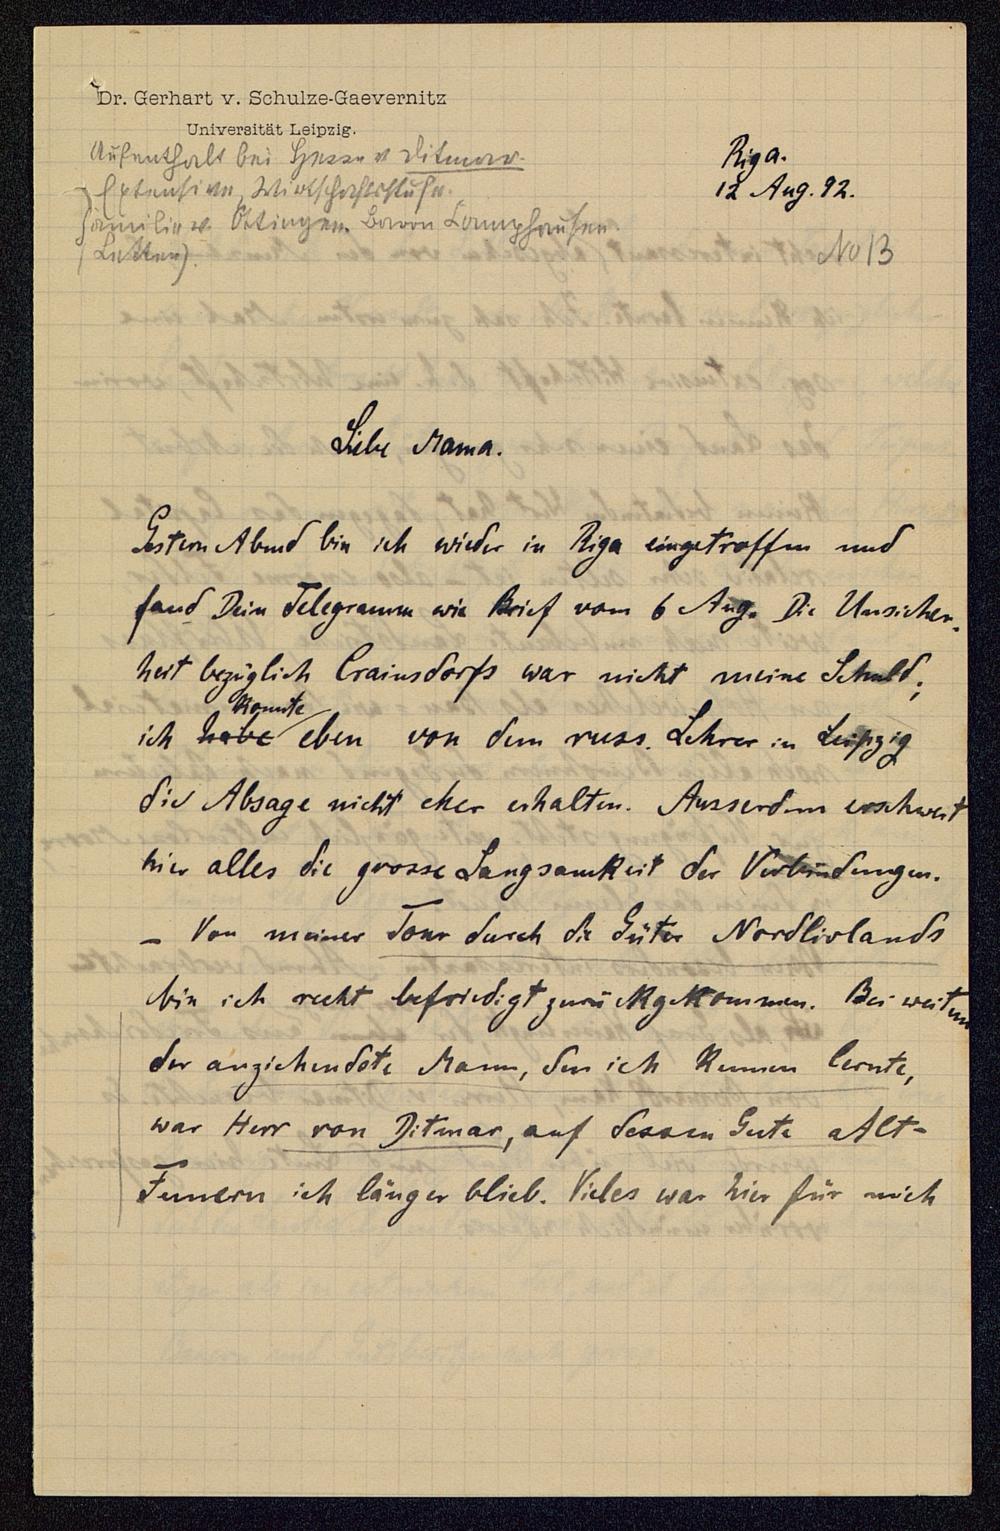 Dr. Gerhart v. Schulze-Gaevernitz
Universität Leipzig.
Aufenthalt bei Herrn v Ditmar.
Extensive Wirtschaftsstufe.
Familie v. Öttingen. Baron Campphausen
(Letten)
Riga.
12 Aug. 92.
No 13
Liebe Mama.
Gestern Abend bin ich wieder in Riga eingetroffen und
fand Dein Telegramm wie Brief vom 6 Aug. Die Unsicher-
heit bezüglich Crainsdorfs war nicht meine Schuld;
konnte
ich habe eben von dem russ. Lehrer in Leipzig
die Absage nicht eher erhalten. Ausserdem erschwert
hier alles die grosse Langsamkeit der Verbindungen.
– Von meiner Tour durch die Güter Nordlivlands
bin ich recht befriedigt zurückgekommen. Bei weitem
der anziehendste Mann, den ich kennen lernte,
war Herr von Ditmar, auf dessen Gute Alt-
Fennern ich länger blieb. Vieles war hier für mich